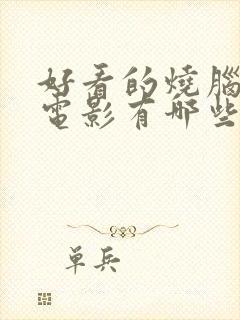 好看的燒腦
電影有哪些
單兵